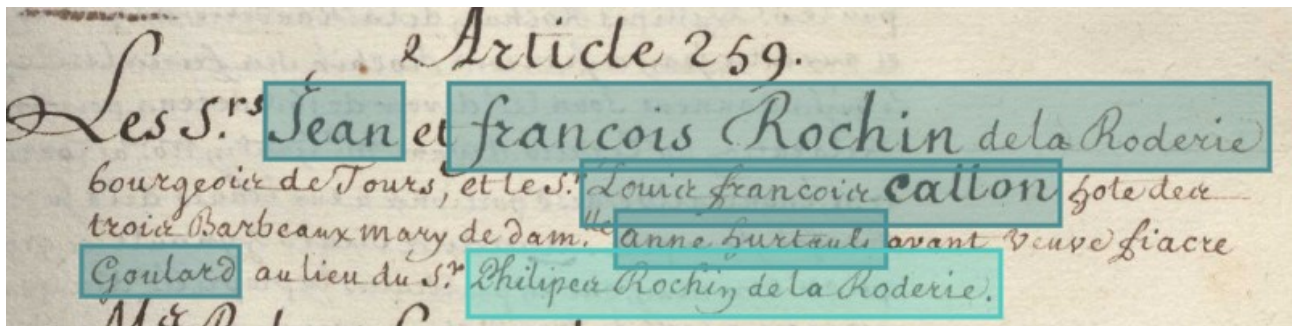 Article 259.
Les S.rs Jean et françois Rochin de la Roderie
bourgeois de Tours, et le S.r Louis françois callon hote des
trois Barbeaux mary de dam.lle anne hurtault avant veuve fiacre
Goulard au lieu du S.r Philipes Rochin de la Roderie.